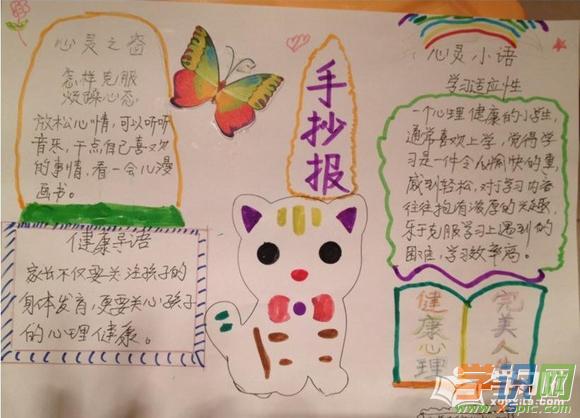 心灵之窗
怎样克服
烦躁心态
放松心情,可以听听
音乐,干点自己喜欢
的事情,看一会儿漫
画书。
健康导语
家长不仅要关注孩子的
身体发育,更要关心孩子
的心理健康。
手抄报
心灵小语
学习适应性
一个心理健康的小学生,
通常喜欢上学,觉得学
习是一件令人愉快的事,
感到轻松,对于学习内容
往往抱有浓厚的兴趣,
乐于克服学习上遇到的
困难,学习效率高。
健康心理
完美人生
学识网
www.xspic.com